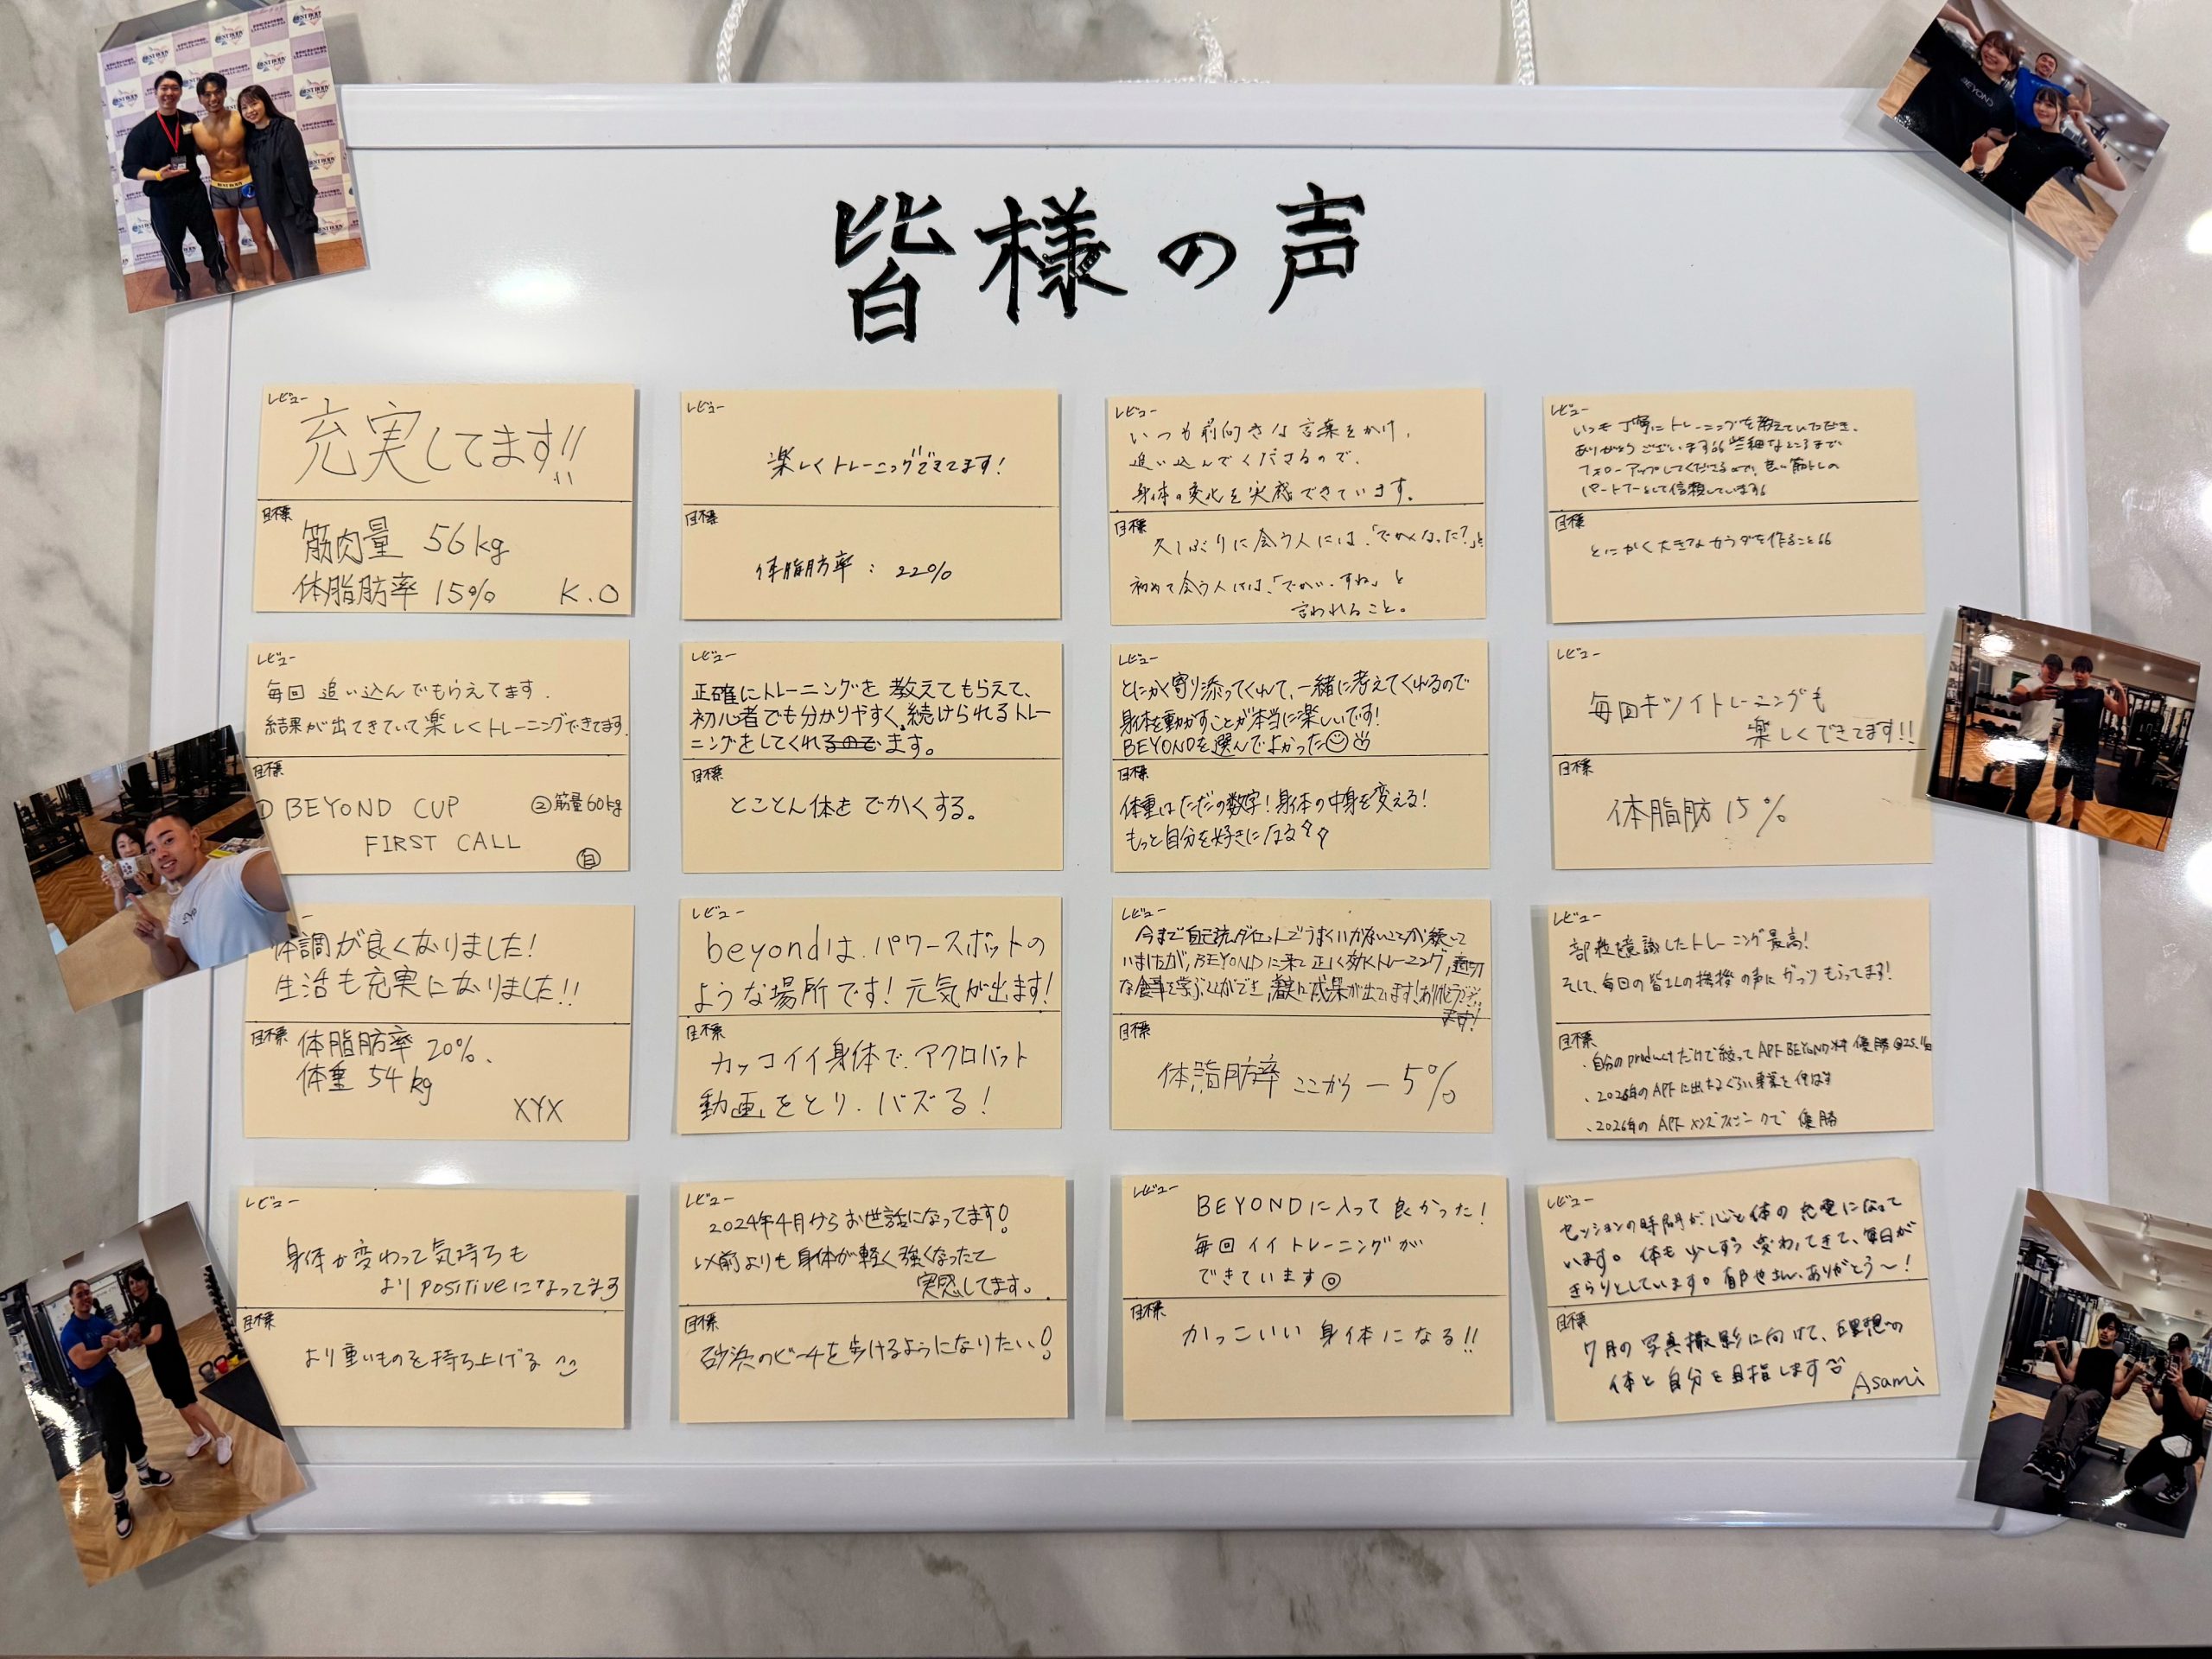 皆様の声
レビュー
充実してます!!
目標
筋肉量 56kg
体脂肪率 15% K.O
レビュー
楽しくトレーニングできてます!
目標
体脂肪率: 22%
レビュー
いつも前向きな言葉をかけ、
追い込んでくださるので、
身体の変化を実感できています。
目標
久しぶりに会う人には、「でかくなった?」と
初めて会う人には、「でかいすね」と
言われること。
レビュー
いつも丁寧にトレーニングを教えていただき、
ありがとうございます。些細なところまで
フォローアップしてくださるので、良い筋トレの
パートナーとして信頼しています。
目標
とにかく大きなカラダを作ること
レビュー
毎回 追い込んでもらえてます.
結果が出てきていて楽しくトレーニングできてます.
目標
① BEYOND CUP ②筋量60kg
FIRST CALL
自
レビュー
正確にトレーニングを教えてもらえて、
初心者でも分かりやすく、続けられるトレー
ニングをしてくれるのでます。
目標
とことん体をでかくする。
レビュー
とにかく寄り添ってくれて、一緒に考えてくれるので
身体を動かすことが本当に楽しいです!
BEYONDを選んでよかった
目標
体重はただの数字!身体の中身を変える!
もっと自分を好きになる
レビュー
毎回キツイトレーニングも
楽しくできてます!!
目標
体脂肪 15%
体調が良くなりました!
生活も充実になりました!!
目標 体脂肪率 20%、
体重 54kg
XYX
レビュー
beyondは、パワースポットの
ような場所です! 元気が出ます!
目標
カッコイイ身体で、アクロバット
動画をとり、バズる!
レビュー
今まで自己流ダイエットでうまくいかないことが続いて
いましたが、BEYONDに来て正しく効くトレーニング、適切
な食事を学ぶことができ、着実に成果が出ています!ありがとうござい
ます!
目標
体脂肪率 ここから −5%
レビュー
部位を意識したトレーニング最高!
そして、毎日の皆さんの挨拶の声にガッツもらってます!
目標
・自分のproductだけで絞ってAPF BEYOND杯 優勝
・2026年のAPFに出れるぐらい事業を伸ばす
・2026年のAPF メンズフィジークで 優勝
レビュー
身体が変わって気持ちも
よりpositiveになってます
目標
より重いものを持ち上げる
レビュー
2024年4月からお世話になってます!
以前よりも身体が軽く強くなったて
実感してます。
目標
砂浜のビーチを歩けるようになりたい!
レビュー
BEYONDに入って良かった!
毎回イイトレーニングが
できています◎
目標
かっこいい身体になる!!
レビュー
セッションの時間が、心と体の充電になって
います。体も少しずつ変わってきて、毎日が
きらりとしています。郁也さん、ありがとう〜!
目標
7月の写真撮影に向けて、理想の
体と自分を目指します
Asami